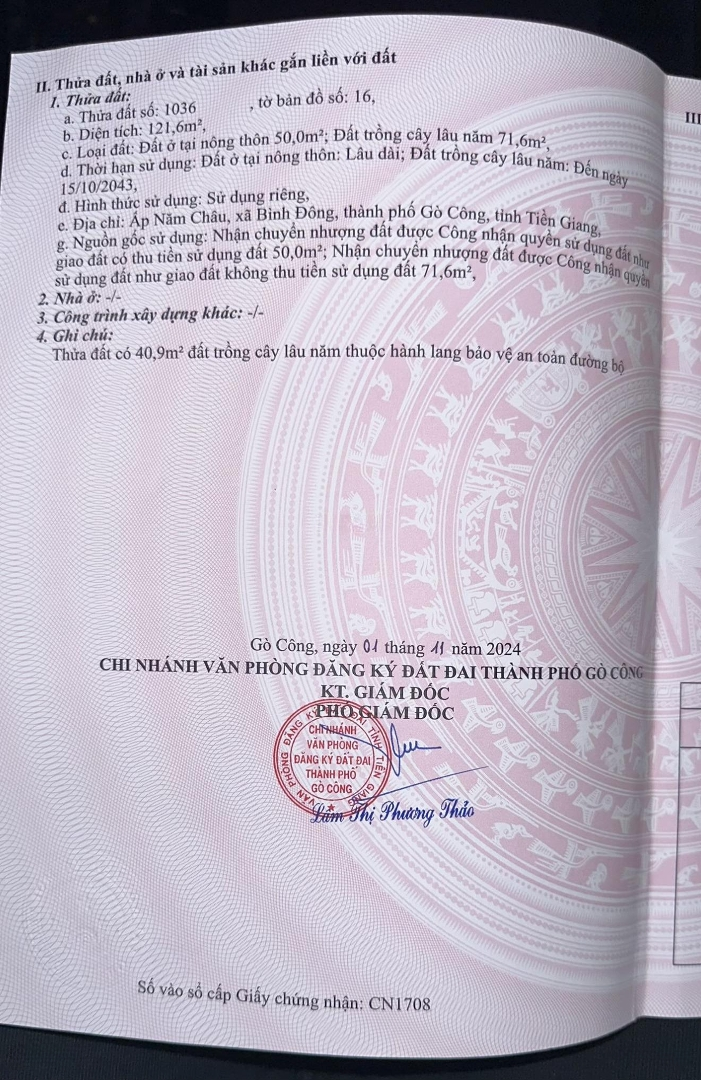 II. Thửa đất, nhà ở và tài sản khác gắn liền với đất
1. Thửa đất:
a. Thửa đất số: 1036 , tờ bản đồ số: 16,
b. Diện tích: 121,6m²,
c. Loại đất: Đất ở tại nông thôn 50,0m²; Đất trồng cây lâu năm 71,6m²,
d. Thời hạn sử dụng: Đất ở tại nông thôn: Lâu dài; Đất trồng cây lâu năm: Đến ngày
15/10/2043,
đ. Hình thức sử dụng: Sử dụng riêng,
e. Địa chỉ: Ấp Năm Châu, xã Bình Đông, thành phố Gò Công, tỉnh Tiền Giang,
g. Nguồn gốc sử dụng: Nhận chuyển nhượng đất được Công nhận quyền sử dụng đất như
giao đất có thu tiền sử dụng đất 50,0m²; Nhận chuyển nhượng đất được Công nhận quyền
sử dụng đất như giao đất không thu tiền sử dụng đất 71,6m²,
2. Nhà ở: -/-
3. Công trình xây dựng khác: -/-
4. Ghi chú:
Thửa đất có 40,9m² đất trồng cây lâu năm thuộc hành lang bảo vệ an toàn đường bộ
III
Gò Công, ngày 01 tháng 11 năm 2024
CHI NHÁNH VĂN PHÒNG ĐĂNG KÝ ĐẤT ĐAI THÀNH PHỐ GÒ CÔNG
KT. GIÁM ĐỐC
PHÓ GIÁM ĐỐC
VĂN PHÒNG ĐĂNG KÝ ĐẤT ĐAI TỈNH TIỀN GIANG
CHI NHÁNH
VĂN PHÒNG
ĐĂNG KÝ ĐẤT ĐAI
THÀNH PHỐ
GÒ CÔNG
Lâm Thị Phương Thảo
Số vào sổ cấp Giấy chứng nhận: CN1708